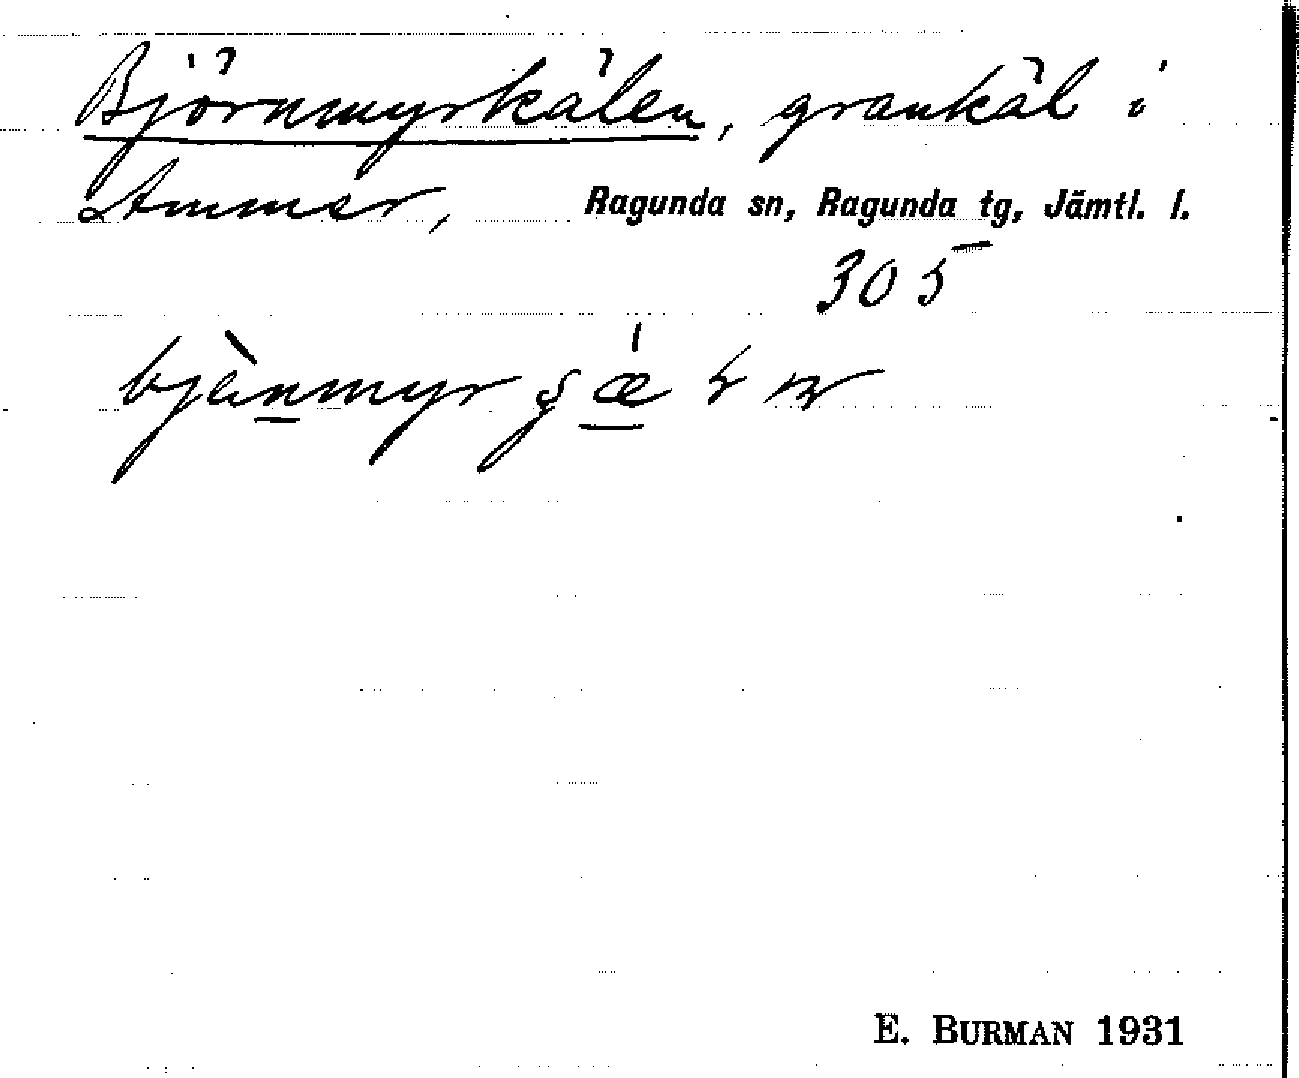 Björnmyrkålen, grankål i
Ammer, Ragunda sn, Ragunda tg, Jämtl. l.
305
E. BURMAN 1931